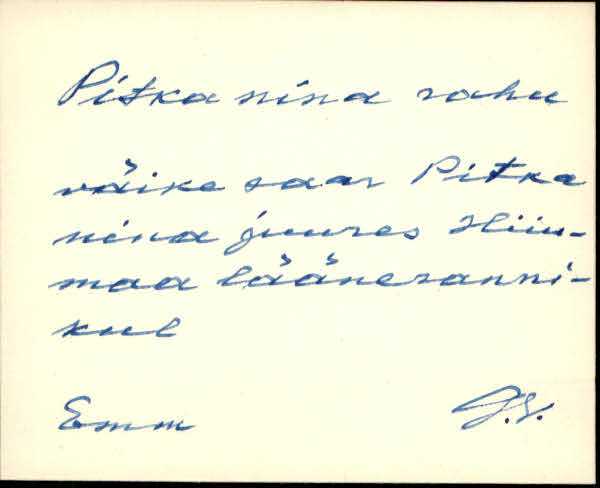 Pitka nina rahu
väike saar Pitka
nina juures Hiiu-
maa lääneranni-
kul
Emm J.V.